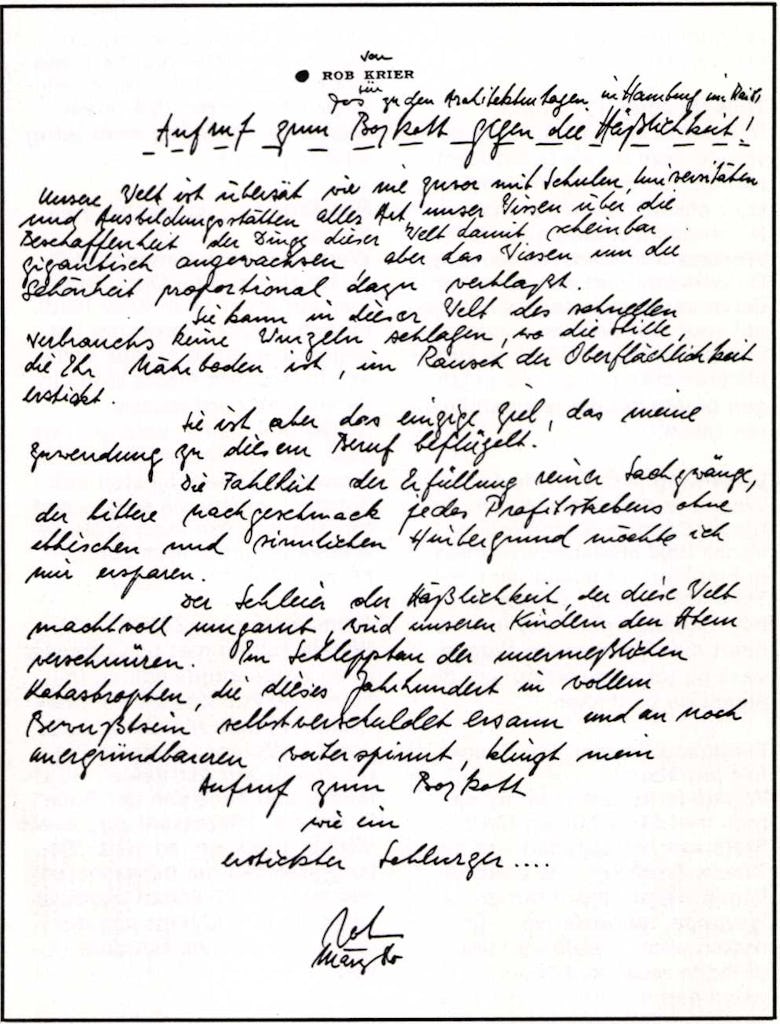 von
ROB KRIER
für
das zu den Architektentagen in Hamburg im
Aufruf zum Boykott gegen die Häßlichkeit!
Unsere Welt ist übersät wie nie zuvor mit Schulen, Universitäten
und Ausbildungsstätten aller Art unser Wissen über die
Beschaffenheit der Dinge dieser Welt damit scheinbar
gigantisch angewachsen aber das Wissen um die
Schönheit proportional dazu verblaßt.
Sie kann in dieser Welt des schnellen
verbrauchs keine Wurzeln schlagen, wo die Stille,
die Ihr Nährboden ist, im Rausch der Oberflächlichkeit
erstickt.
Sie ist aber das einzige Ziel, das meine
zuwendung zu diesem Beruf beflügelt.
Die Fahlheit der Erfüllung reiner Sachzwänge,
der bittere nachgeschmack jedes Profitstrebens ohne
ethischen und sinnlichen Hintergrund möchte ich
mir ersparen.
Der Schleier der Häßlichkeit, der diese Welt
machtvoll umgarnt, wird unseren Kindern den Atem
verschnüren. Im Schlepptau der unermeßlichen
Katastrophen, die dieses Jahrhundert in vollem
Bewußtsein selbstverschuldet ersann und an noch
unergründbareren weiterspinnt, klingt mein
Aufruf zum Boykott
wie ein
erstickter Schluzger....
Rob
März 80